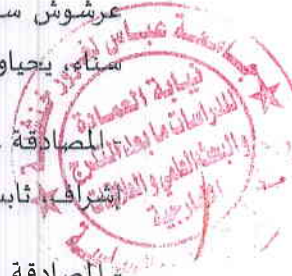 عرشوش سـ
سناء، يحياو
- المصادقة
إشراف، ثابت
- المصادقة
جامعة عباس لغرور خنشلة
نيابة العمادة
للدراسات ما بعد التدرج
والبحث العلمي والعلاقات
الخارجية